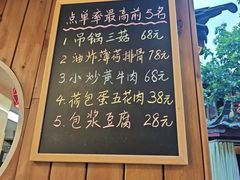 点单率最高前5名
1 吊锅三菇 68元
2 油炸薄荷排骨 78元
3 小炒黄牛肉 68元
4 荷包蛋五花肉 38元
5. 包浆豆腐 28元